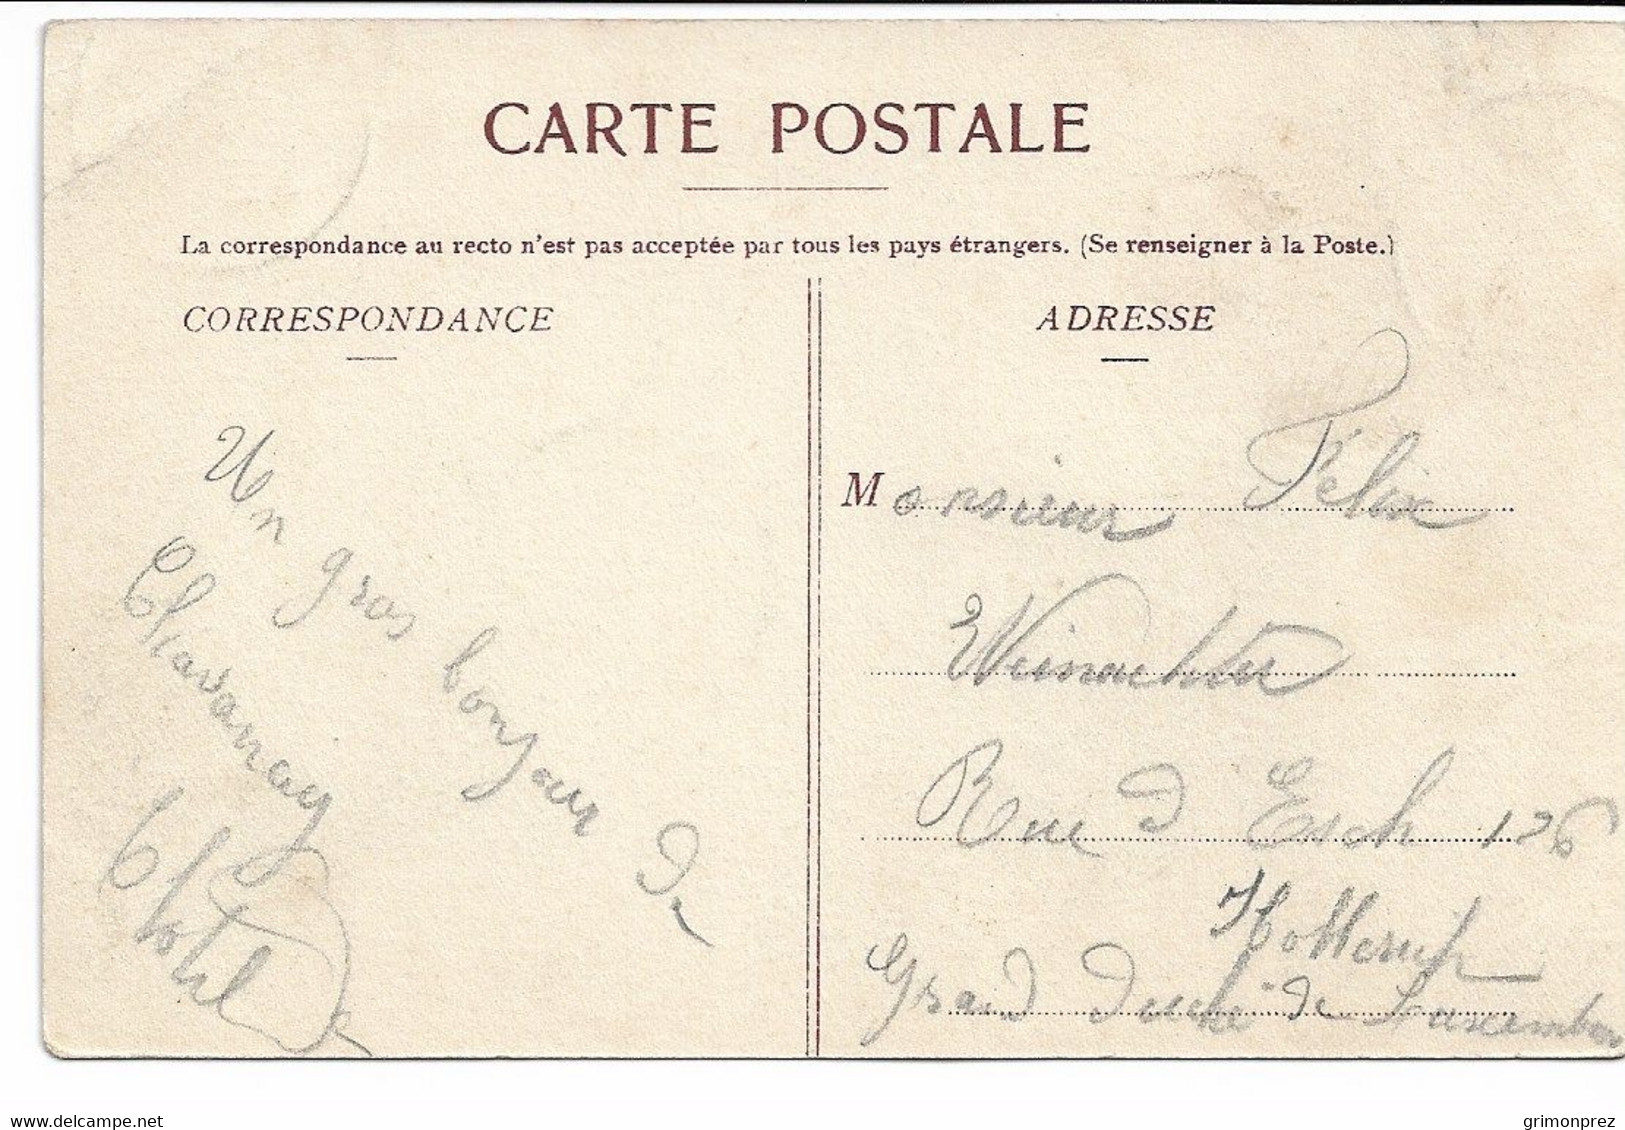 CARTE POSTALE
La correspondance au recto n'est pas acceptée par tous les pays étrangers. (Se renseigner à la Poste.)
CORRESPONDANCE
Un gros bonjour de
Chavannay
Clotilde
ADRESSE
Monsieur Félix
Weinachter
Rue d'Esch 126
Hollerich
Grand Duché de Luxembourg
www.delcampe.net
grimonprez